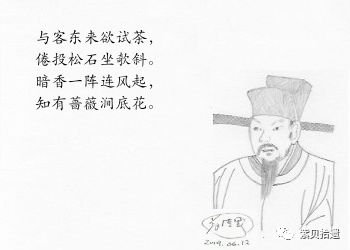 与客东来欲试茶，
倦投松石坐欹斜。
暗香一阵连风起，
知有蔷薇涧底花。
2019.06.12
紫贝拾遗